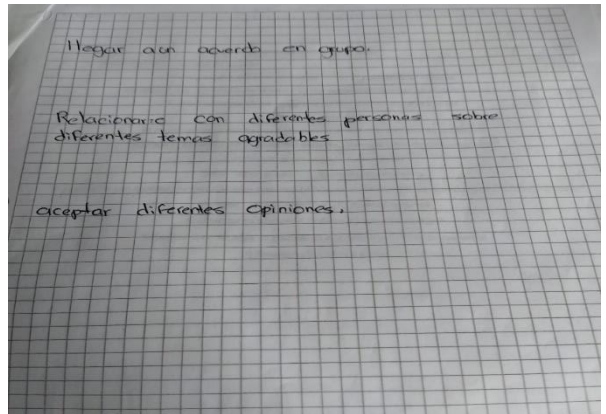 llegar aun acuerdo en grupo.
Relacionarse con diferentes personas sobre
diferentes temas agradables
aceptar diferentes opiniones.